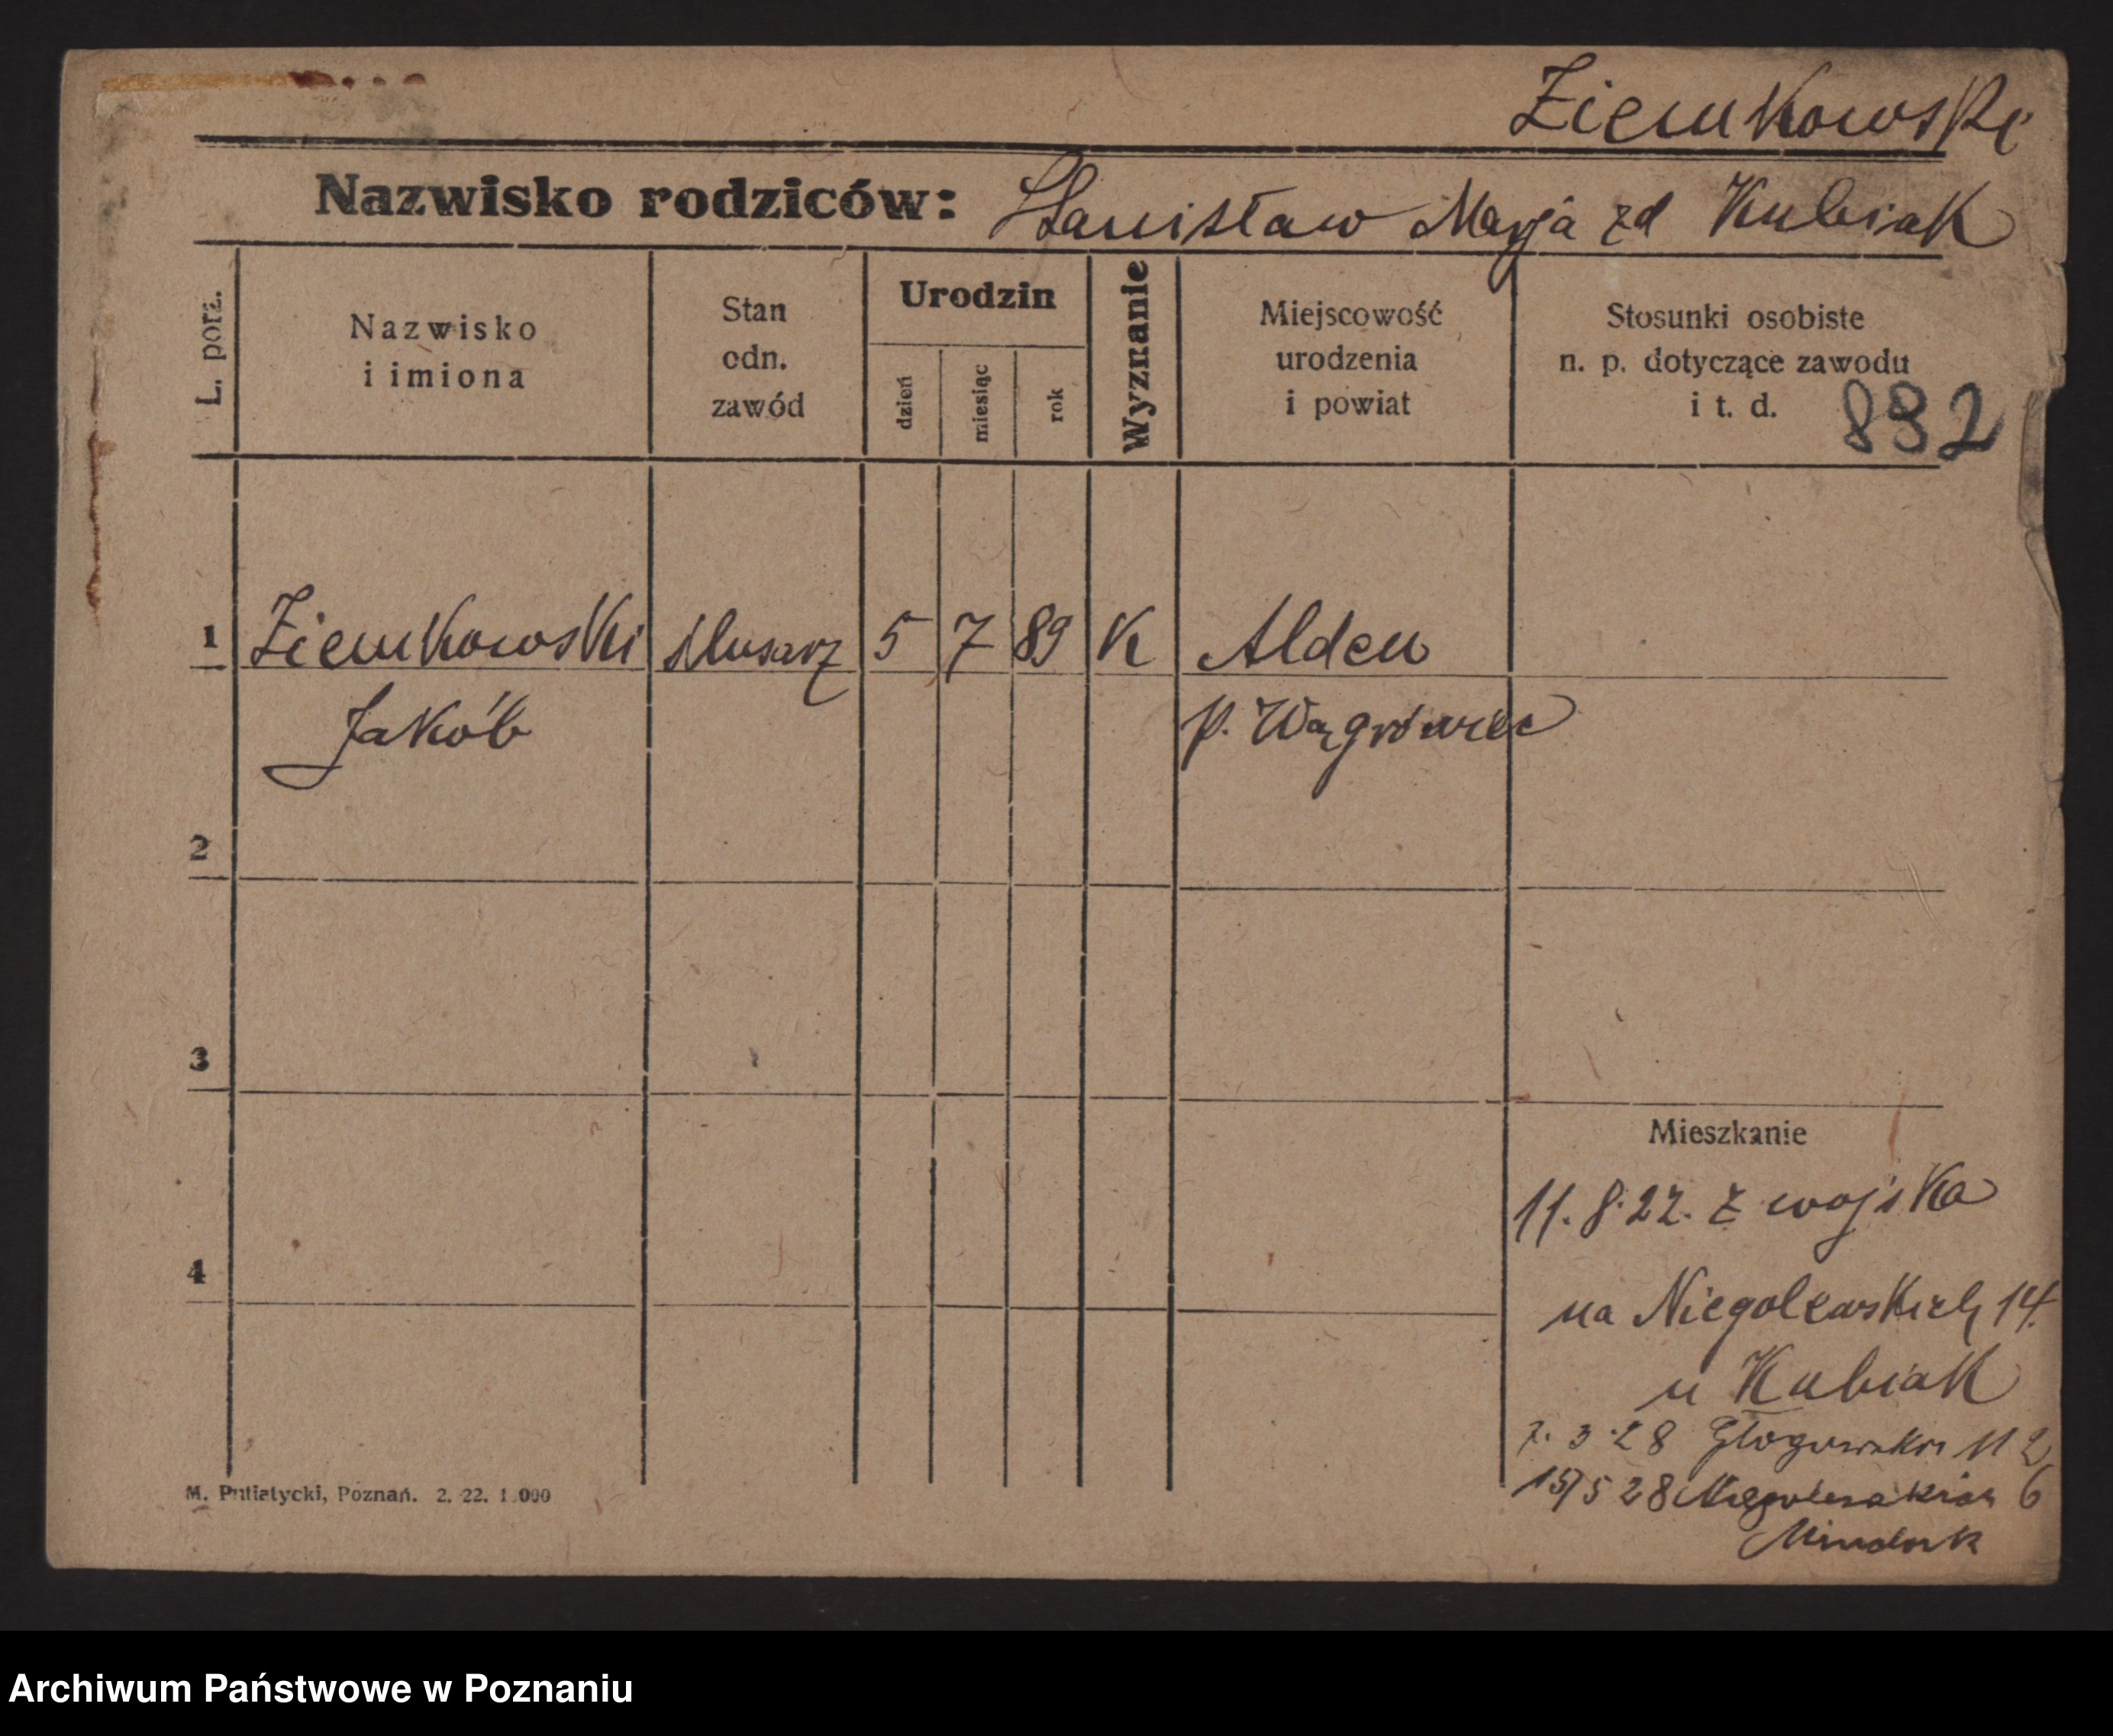 Ziemkowski
Nazwisko rodziców: Stanisław Marja zd Kubiak
L. porz.
Nazwisko
i imiona
Stan
odn.
zawód
Urodzin
dzień
miesiąc
rok
Wyznanie
Miejscowość
urodzenia
i powiat
Stosunki osobiste
n. p. dotyczące zawodu
i t. d.
832
1 Ziemkowski ślusarz 5 7 89 K Alden
Jakób p. Wągrówiec
2
3
Mieszkanie
11. 8. 22. z wojska
4
na Niegolewskich 14.
u Kubiak
7. 3. 28 Głogowska 112
15/5 28 Niegolewskich 6
M. Putiatycki, Poznań. 2. 22. 1.000
Archiwum Państwowe w Poznaniu